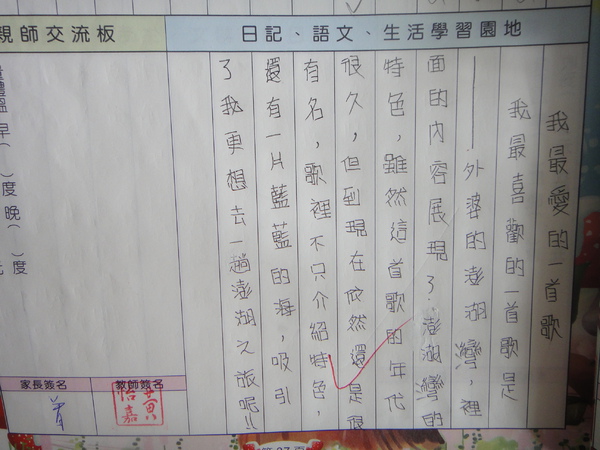 日記、語文、生活學習園地
我最愛的一首歌
我最喜歡的一首歌是
——外婆的澎湖灣,裡
面的內容展現了:澎湖灣的
特色,雖然這首歌的年代
很久,但到現在依然還是很
有名,歌裡不只介紹特色,
還有一片藍藍的海,吸引
了我更想去一趟澎湖之旅呢!!
親師交流板
早( )度
晚( )度
家長簽名
教師簽名